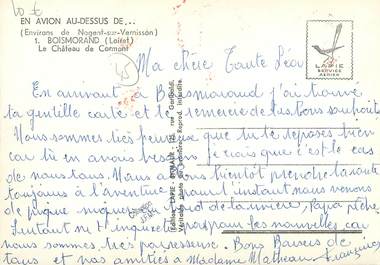 10 €
EN AVION AU-DESSUS DE,..
(Environs de Nogent-sur-Vernisson)
1. BOISMORAND (Loiret)
Le Château de Cormont
45
LAPIE
SERVICE
AÉRIEN
Ma chère Tante Léo
En arrivant à Boismorand j'ai trouvé
ta gentille carte et te remercie de tes bons souhaits
Nous sommes très heureux que tu te reposes bien
car tu en avais besoin je crois que c'est le cas
de nous tous. Nous allons bientôt prendre la route
toujours à l'aventure pour l'instant nous venons
de pique niquer de la rivière, Papa pêche
Surtout ne t'inquiète pas pour les nouvelles car
nous sommes très paresseuse. Bons Baisers de
tous et nos amitiés à Madame Matheau Françoise